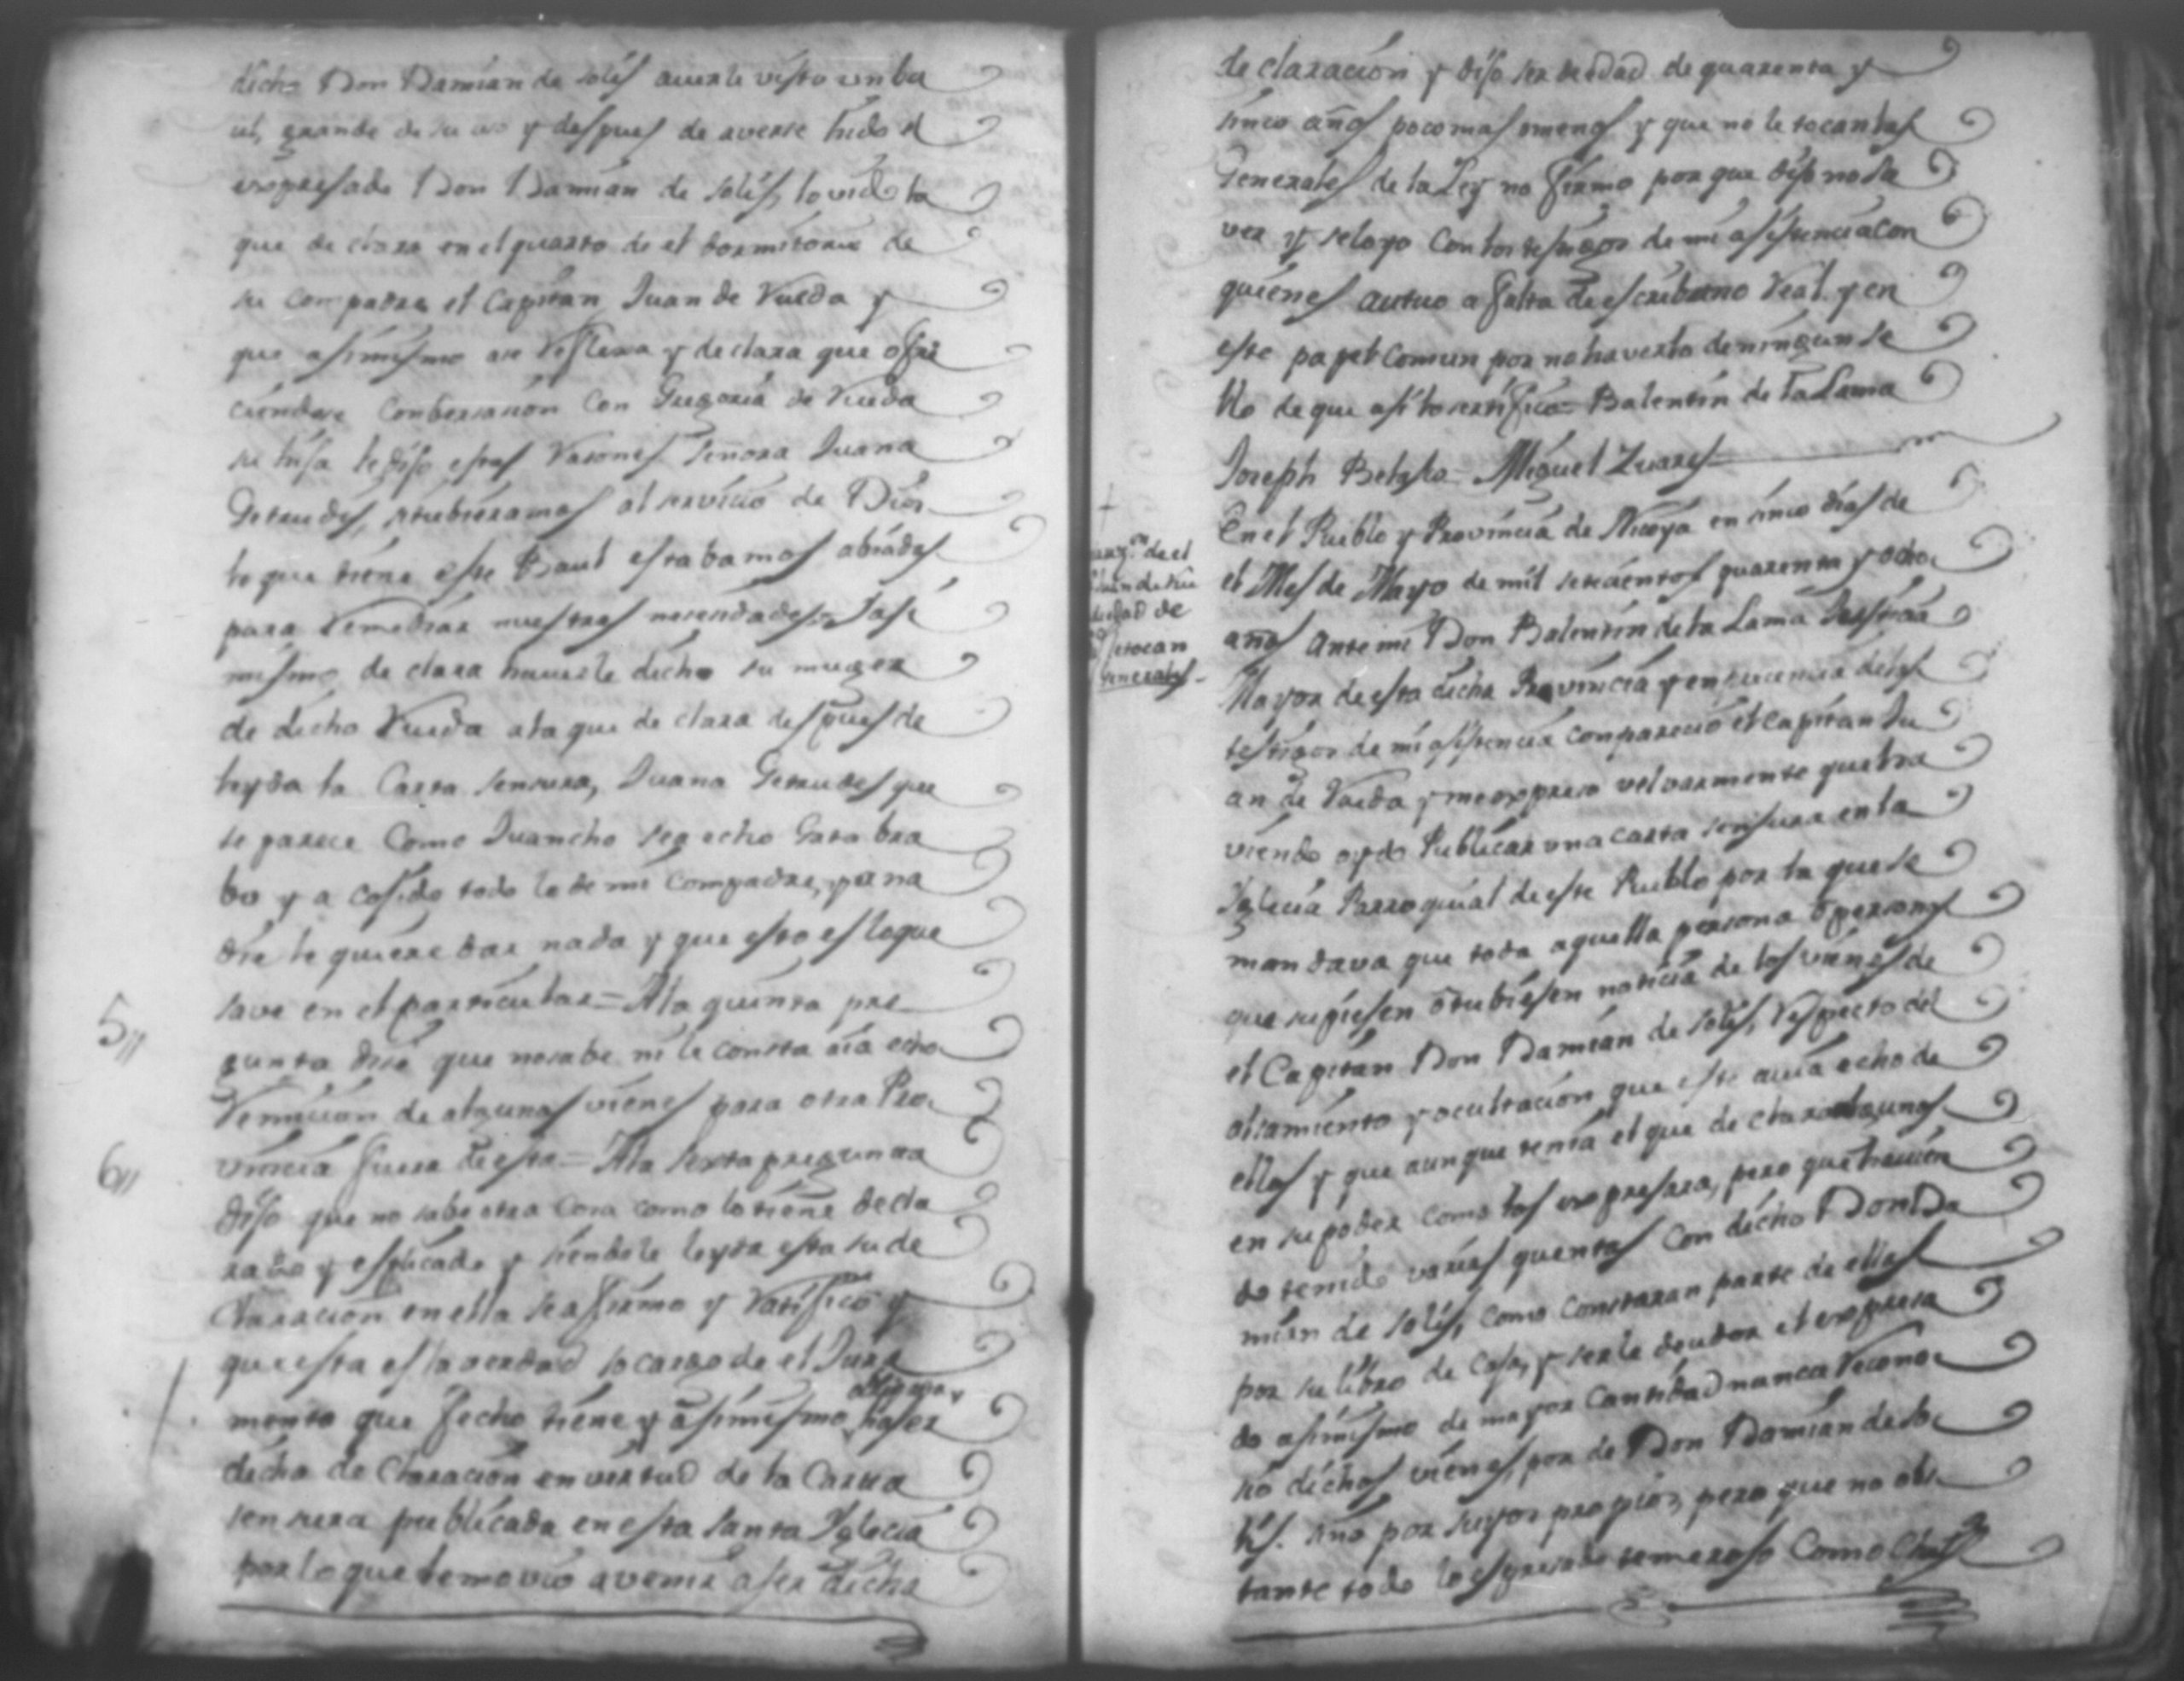 dicho Don Damian de solis auerle visto un ba
ul, grande de su uso y despues de averse huido el
expresado Don Damian de solis, lo vido la
que declara en el quarto de el dormitorio de
su compadre el Capitan Juan de Vueda y
que asimismo se Vefiera y declara que ofre
ciendose Conbersasion Con Gregoria de Vueda
su hija le dijo estas Vasones Señora Juana
Getrudes, stubieramos al servicio de Dios
lo que tiene este Baul estabamos abiados
para Vemediar nuestras nesecidades Y asi
mismo declara haverle dicho su muger
de dicho Vueda a la que declara despues de
leyda la Carta sensura, Juana Getrudes que
te parece Como Juancho se a echo Gara bra
bo y a cojido todo lo de mi compadre, y a na
die le quiere dar nada y que esto es lo que
save en el particular = A la quinta pre
5,, gunta dijo que no sabe ni le consta aia echo
Vemision de algunas vienes para otra Pro
6,, vincia fuera de esta = A la sexta pregunta
dijo que no sabe otra cosa como lo tiene decla
rado y esplicado y siendole leyda esta su de
Claracion en ella se afirmo y Vatifico y
que esta es la verdad so cargo de el Jura
mento que fecho tiene y asimismo haser
dicha de Claracion en virtud de la Carta
sensura publicada en esta Santa Yglecia
por lo que le movio a venir a ser dicha
declaracion y dijo ser de edad de quarenta y
sinco años poco mas o menos y que no le tocan las
Generales de la Ley no firmo por que dijo no sa
ver y se la yo Con los testigos de mi asistencia Con
quienes autuo a falta de escribano Veal y en
este papel Comun por no haverlo de ningun se
llo de que asi lo sertifico = Balentin de la Lama
Joseph Belasco = Miguel Zuares
En el Pueblo y Provincia de Nicoya en sinco dias de
el Mes de Mayo de mil setecientos quarenta y ocho
años ante mi Don Balentin de la Lama Justicia
Mayor de esta dicha Provincia y en precencia de los
testigos de mi asistencia comparecio el Capitan Ju
an de Vueda y me expreso velvarmente que ha
viendo oydo Publicar una carta sensura en la
Yglecia Parroquial de este Pueblo por la que se
mandava que toda aquella persona o personas
que supiesen o tubiesen noticia de los vienes de
el Capitan Don Damian de solis, Vespecto del
alsamiento y ocultacion que este auia echo de
ellos y que aunque tenia el que declara algunos
en su poder como los expresara, pero que havien
do tenido varias quentas Con dicho Don Da
mian de solis, como constaran parte de ellas
por su libro de Caja, y serle deudor el expresa
do asimismo de mayor Cantidad nunca Vecono
sio dichos vienes, por de Don Damian de so
lis. sino por suyos propios, pero que no obs
tante todo lo espresado temeroso Como Chris
de el
de
tocan
Generales